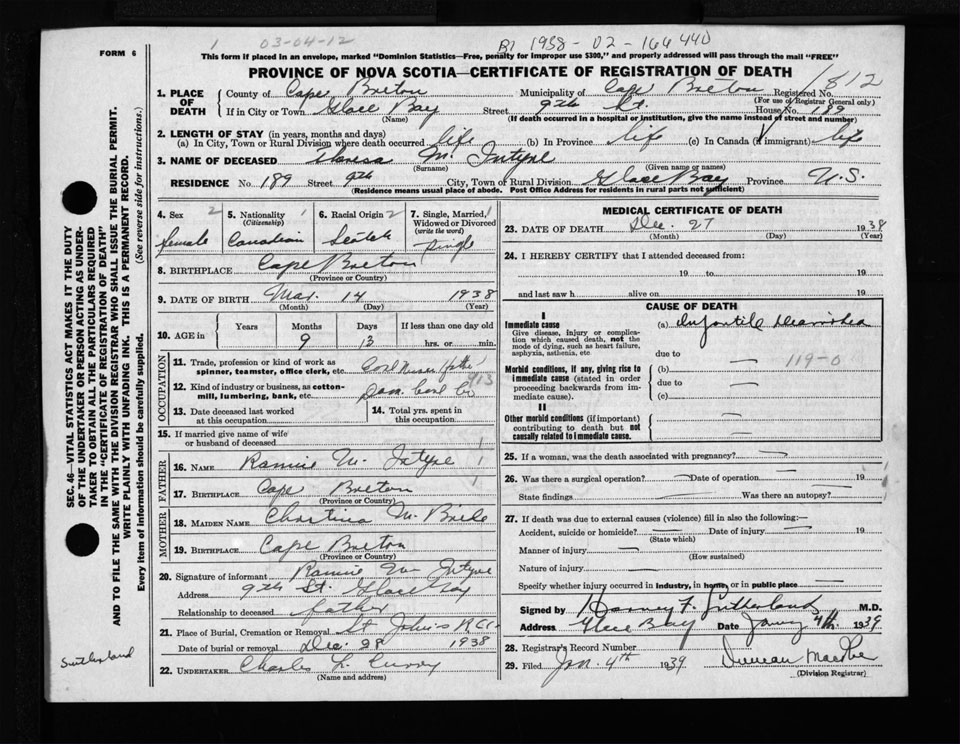 1 03-04-12
B1 1938-02-166440
FORM 6
This form if placed in an envelope, marked "Dominion Statistics—Free, penalty for improper use $300," and properly addressed will pass through the mail "FREE"
PROVINCE OF NOVA SCOTIA—CERTIFICATE OF REGISTRATION OF DEATH
1812
1. PLACE OF DEATH
County of Cape Breton Municipality of Cape Breton Registered No.
(For use of Registrar General only)
If in City or Town Glace Bay Street 9th St. House No. 189
(Name) (If death occurred in a hospital or institution, give the name instead of street and number)
2. LENGTH OF STAY (in years, months and days)
(a) In City, Town or Rural Division where death occurred life (b) In Province life (c) In Canada (if immigrant) life
3. NAME OF DECEASED M. Intyre
(Surname) (Given name or names)
RESIDENCE No 189 Street 9th City, Town or Rural Division Glace Bay Province N.S.
(Residence means usual place of abode. Post Office Address for residents in rural parts not sufficient)
4. Sex 2 female
5. Nationality 1 Canadian
6. Racial Origin 2 Scotch
7. Single, Married, Widowed or Divorced (write the word) 1 Single
8. BIRTHPLACE Cape Breton
(Province or Country)
9. DATE OF BIRTH Mar. 14 1938
(Month) (Day) (Year)
10. AGE in Years Months 9 Days 13 If less than one day old hrs. or min.
OCCUPATION
11. Trade, profession or kind of work as spinner, teamster, office clerk, etc. Coal
12. Kind of industry or business, as cotton-mill, lumbering, bank, etc. Dom. Coal Co
13. Date deceased last worked at this occupation
14. Total yrs. spent in this occupation
15. If married give name of wife or husband of deceased
FATHER
16. NAME Rannie M. Intyre 1
17. BIRTHPLACE Cape Breton 1
(Province or Country)
MOTHER
18. MAIDEN NAME Christina
19. BIRTHPLACE Cape Breton
(Province or Country)
20. Signature of informant Rannie Mc Intyre
Address 9th St. Glace Bay
Relationship to deceased father
21. Place of Burial, Cremation or Removal St John's
Date of burial or removal Dec. 28 1938
22. UNDERTAKER Charles L. Curry
(Name and address)
MEDICAL CERTIFICATE OF DEATH
23. DATE OF DEATH Dec. 27 1938
(Month) (Day) (Year)
24. I HEREBY CERTIFY that I attended deceased from:
19 to 19
and last saw h alive on 19
CAUSE OF DEATH
I
Immediate cause (a) Infantile Diarrhea
Give disease, injury or complication which caused death, not the mode of dying, such as heart failure, asphyxia, asthenia, etc
due to
119-0
Morbid conditions, if any, giving rise to immediate cause (stated in order proceeding backwards from immediate cause). (b)
due to
(c)
II
Other morbid conditions (if important) contributing to death but not causally related to immediate cause.
25. If a woman, was the death associated with pregnancy?
26. Was there a surgical operation? Date of operation 19
State findings Was there an autopsy?
27. If death was due to external causes (violence) fill in also the following:—
Accident, suicide or homicide? Date of injury 19
(State which)
Manner of injury
(How sustained)
Nature of injury
Specify whether injury occurred in industry, in home, or in public place
Signed by Harvey F. Sutherland M.D.
Address Glace Bay Date 4th 1939
28. Registrar's Record Number
29. Filed Jan. 4th 1939 Duncan
(Division Registrar)
SEC. 46—VITAL STATISTICS ACT MAKES IT THE DUTY
OF THE UNDERTAKER OR PERSON ACTING AS UNDER-
TAKER TO OBTAIN ALL THE PARTICULARS REQUIRED
IN THE "CERTIFICATE OF REGISTRATION OF DEATH"
AND TO FILE THE SAME WITH THE DIVISION REGISTRAR WHO SHALL ISSUE THE BURIAL PERMIT.
WRITE PLAINLY WITH UNFADING INK. THIS IS A PERMANENT RECORD.
Every item of information should be carefully supplied. (See reverse side for instructions.)
Sutherland